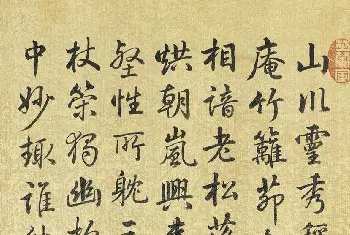 山川靈秀
庵竹籬茆
相諳老松
烘朝嵐興
壑性所耽
杖策獨幽
中妙趣誰